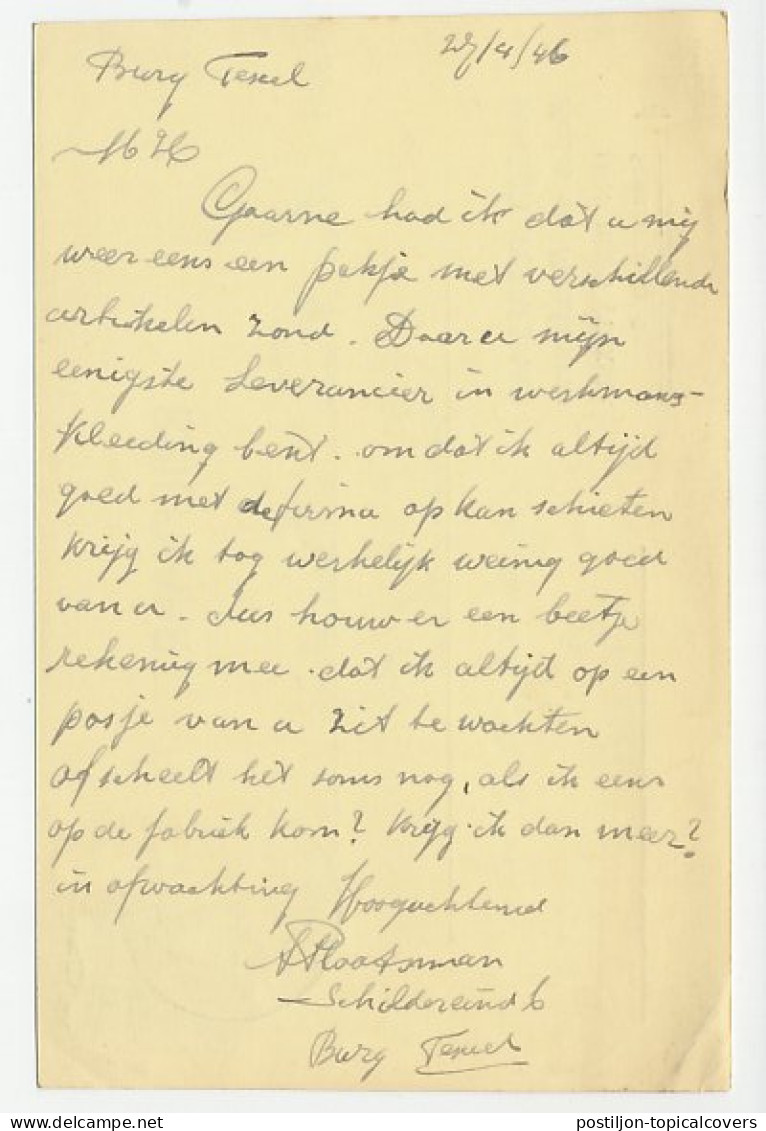 Burg Texel 27/4/46
M H
Gaarne had ik dat u mij
weer eens een pakje met verschillende
artikelen zond. Daar u mijn
eenigste Leverancier in werkmans-
kleeding bent. omdat ik altijd
goed met de firma op kan schieten
krijg ik tog werkelijk weinig goed
van u. Dus houw er een beetje
rekening mee. dat ik altijd op een
posje van u zit te wachten
of scheelt het soms nog, als ik eens
op de fabriek kom? Krijg ik dan meer?
in afwachting Hoogachtend
Plaatsman
Schildereind 6
Burg Texel
postiljon-topicalcovers